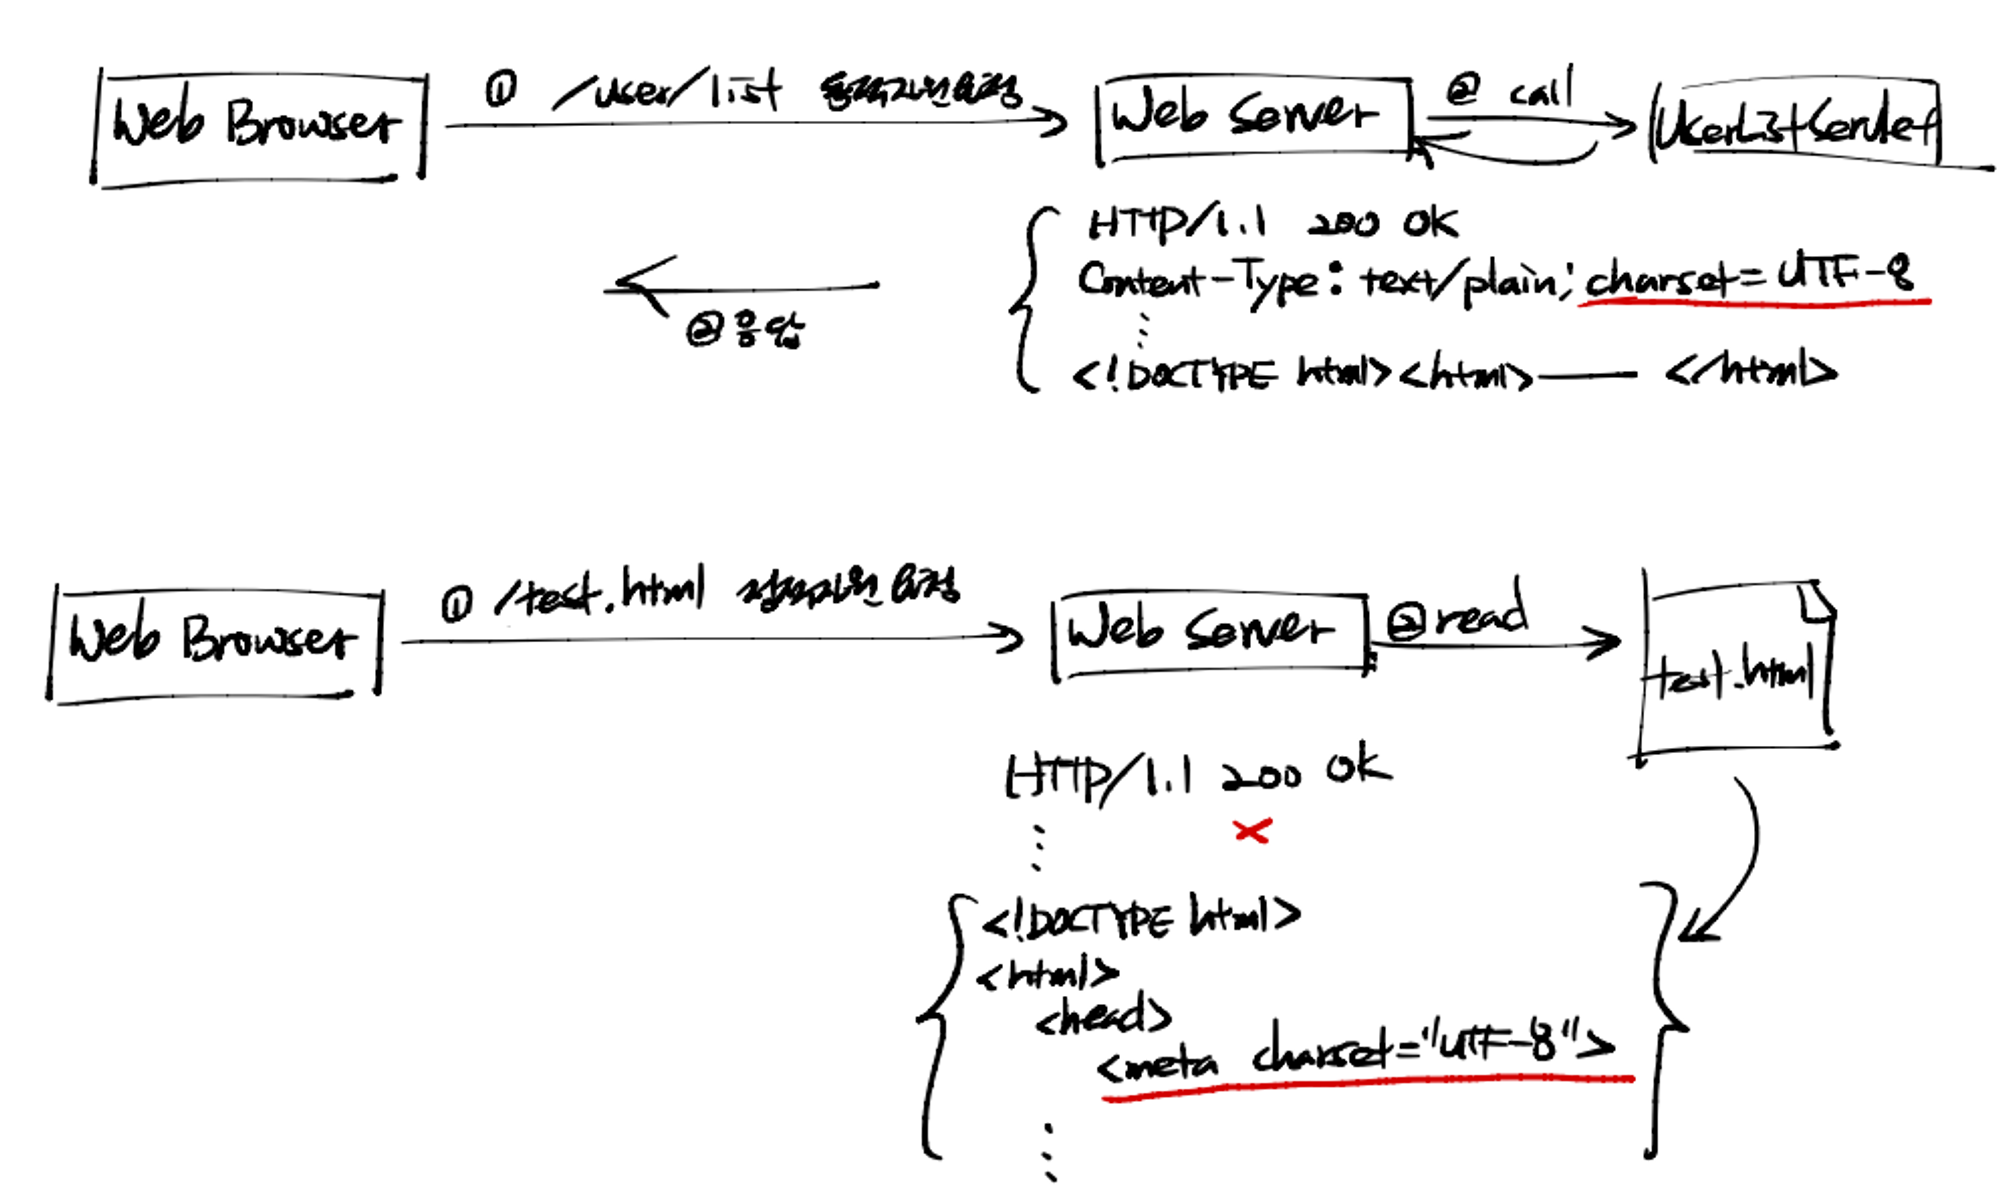 Web Browser
① /user/list 동적자원요청
Web Server
② call
UserListServlet
HTTP/1.1 200 OK
Content-Type: text/plain; charset=UTF-8
②응답
<!DOCTYPE html><html> </html>
Web Browser
① /test.html 정적자원 요청
Web Server
② read
test.html
HTTP/1.1 200 OK
<!DOCTYPE html>
<html>
<head>
<meta charset="UTF-8">